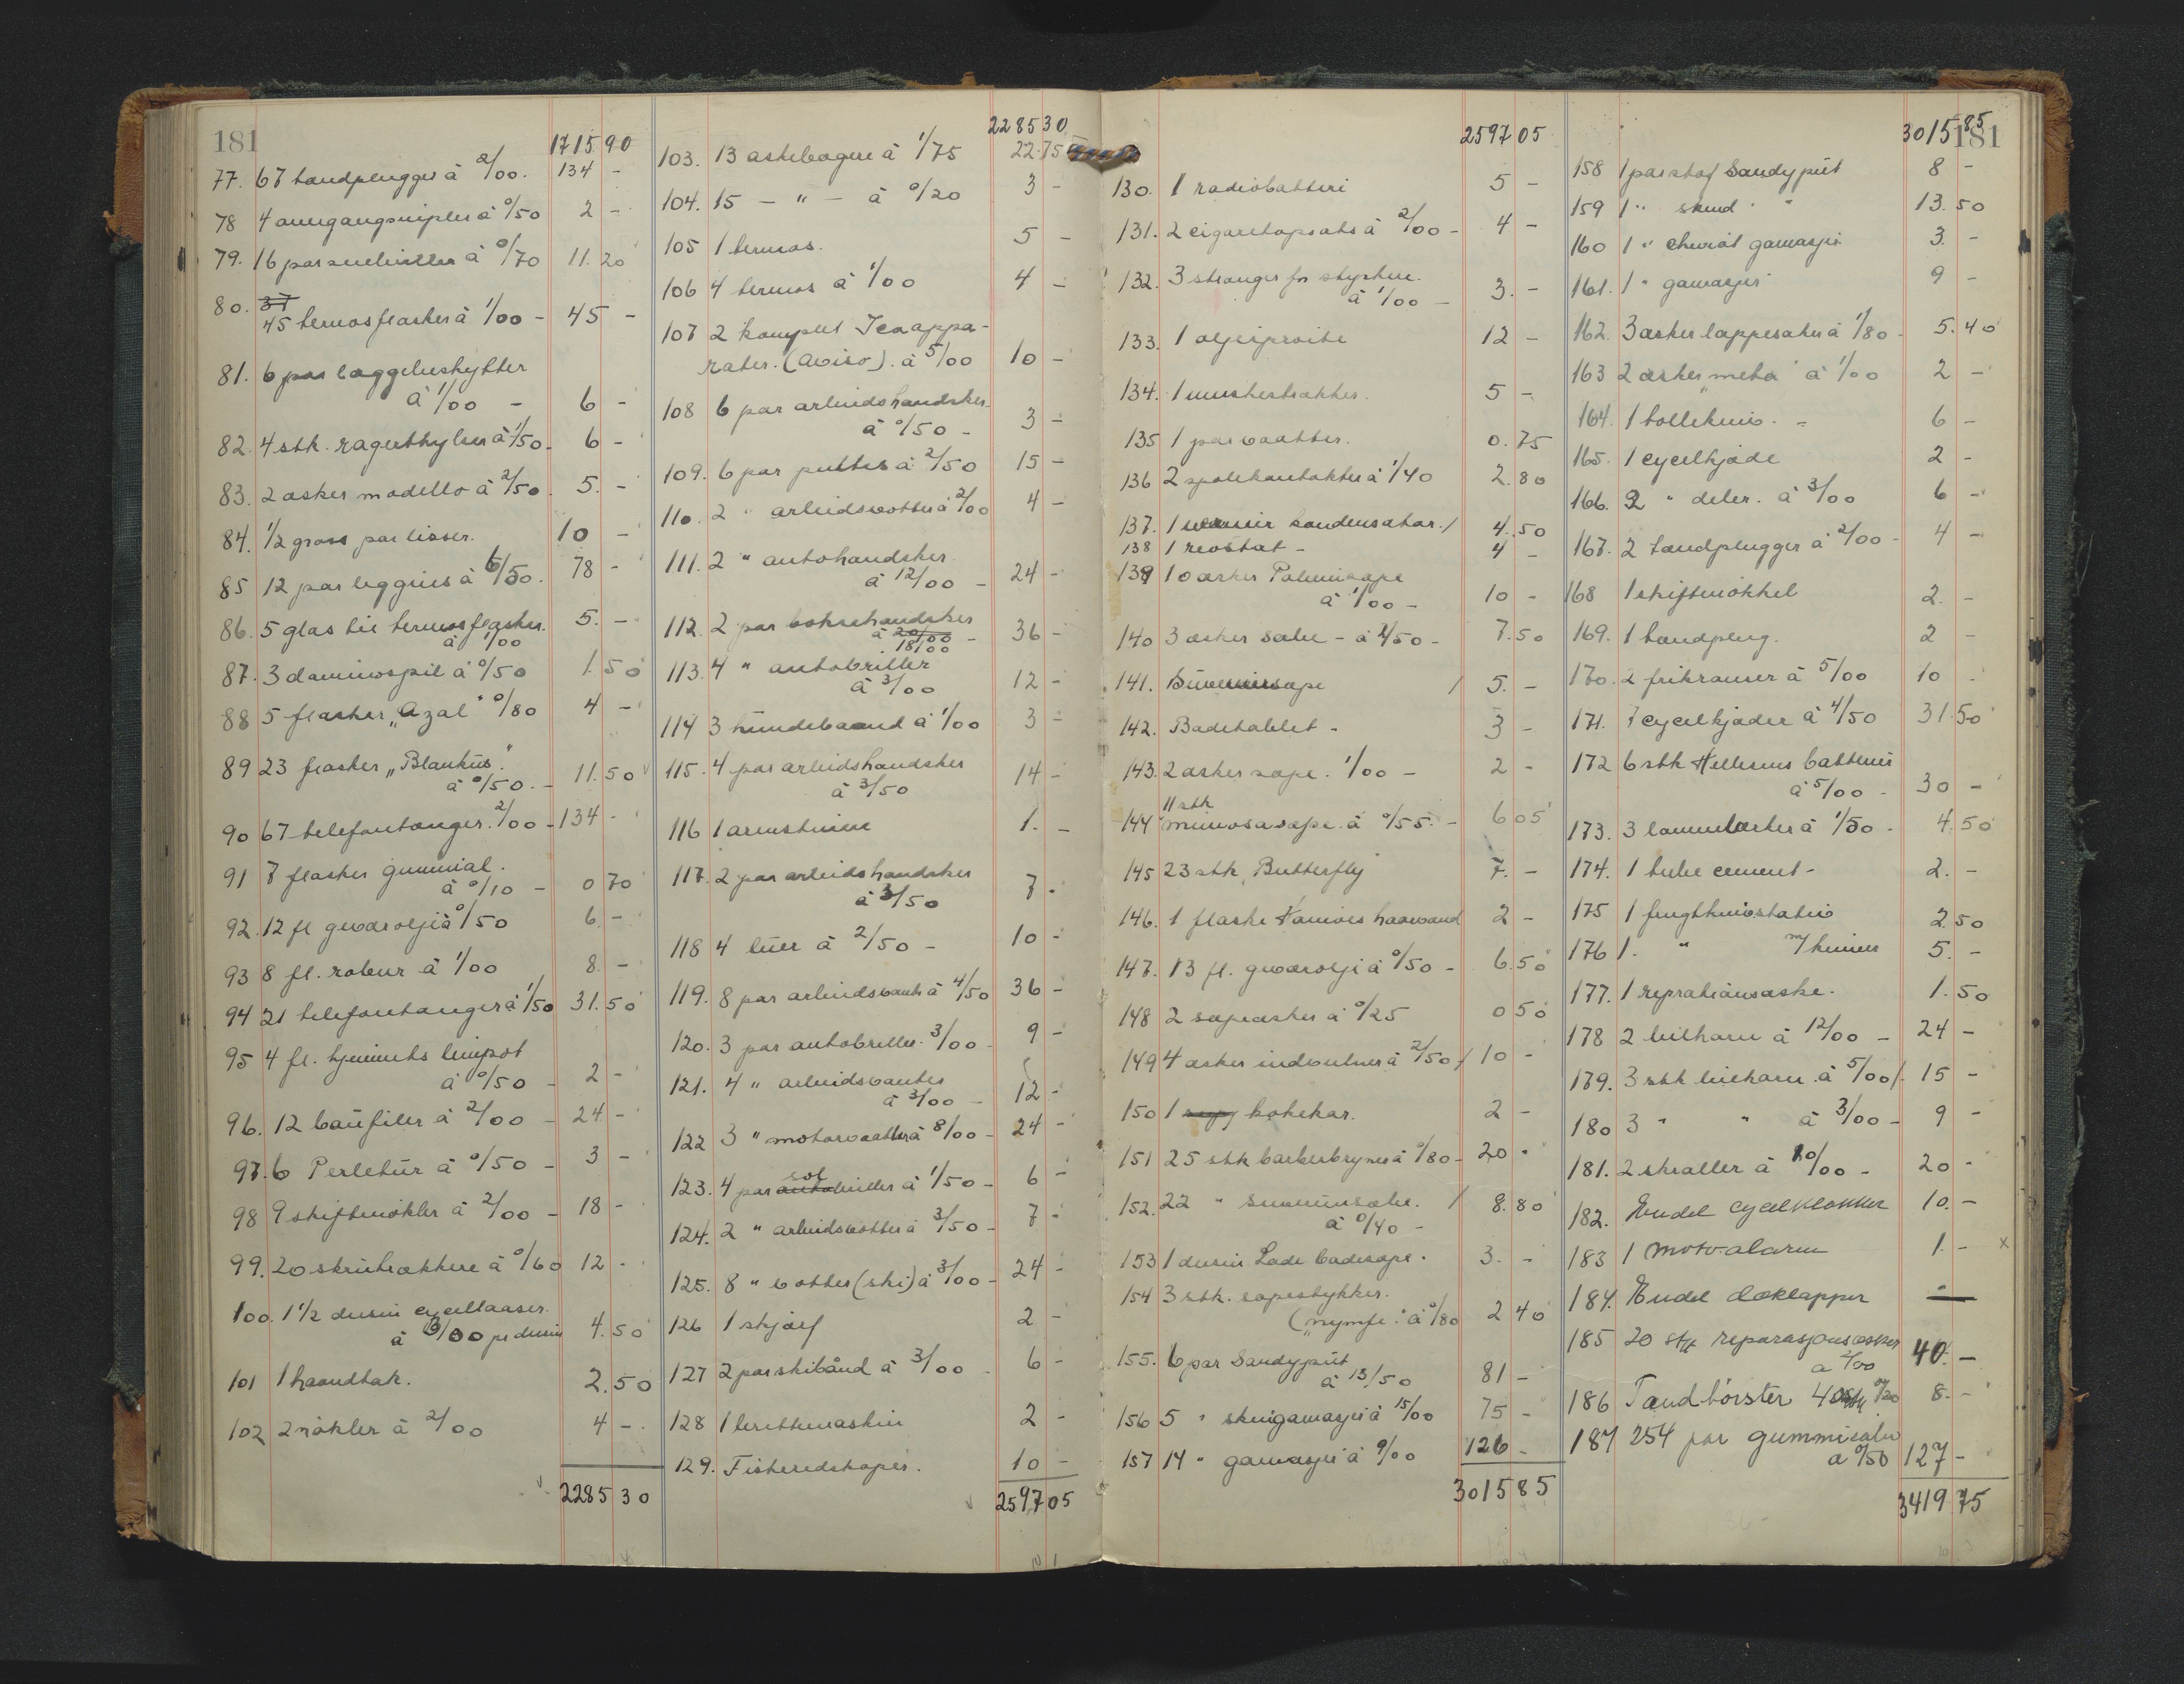 181
1715 90
77. 67 tandplugger à 2/00. 134 -
78 4 overgangsnipler à 0/50 2 -
79. 16 par snebriller à 0/70 11.20
80. 37
45 termosflasker à 1/00 - 45 -
81. 6 par baggelushytter
à 1/00 - 6 -
82. 4 stk. ragerthylser à 1/50 - 6 -
83. 2 esker modello à 2/50. 5. -
84. 1/2 gross par lisser. 10 -
85 12 par leggins à 6/50. 78 -
86. 5 glas til termosflasker. 5. -
à 1/00
87. 3 dominospil à 0/50 1.50
88 5 flasker „Azal" 0/80 4 -
89 23 flasker „Blankus".
à 0/50. - 11.50
90 67 telefontanger. 2/00 - 134 -
91 7 flasker gummial.
à 0/10 - 0 70
92. 12 fl gevarolje à 0/50 6. -
93 8 fl. robur à 1/00 8. -
94 21 telefontanger à 1/50 31.50
95 4 fl. hjemmets limpot
à 0/50 - 2 -
96. 12 baufiler à 2/00 - 24 -
97. 6 Perletur à 0/50 - 3 -
98 9 skiftenøkler à 2/00 - 18 -
99. 20 skrutrækkere à 0/60 12 -
100. 1 1/2 dusin cycellaaser.
à 3/00 pr dusin 4.50
101 1 haandtak. 2.50
102 2 nøkler à 2/00 4 -
2285 30
2285 30
103. 13 askebægere à 1/75 22.75
104. 15 - " - à 0/20 3 -
105 1 termos. 5 -
106 4 termos à 1/00 4 -
107 2 komplet Icaappa-
rater. (Aviso). à 5/00 10 -
108 6 par arbeidshandsker.
à 0/50 - 3 -
109. 6 par puttis à 2/50 15 -
110. 2 " arbeidsvotter à 2/00 4 -
111. 2 " autohandsker.
à 12/00 - 24 -
112. 2 par boksehandsker
à 20/00 18/00 - 36 -
113. 4 " autobriller
à 3/00 12 -
114 3 hundebaand à 1/00 3 -
115. 4 par arbeidshandsker
à 3/50 14 -
116 1 armstrim 1. -
117. 2 par arbeidshandsker
à 3/50 7 -
118 4 luer à 2/50 - 10 -
119. 8 par arbeidsvanter à 4/50 36 -
120. 3 par autobriller. 3/00 - 9 -
121. 4 " arbeidsvanter
à 3/00 - 12 -
122 3 " motorvaatter à 8/00 - 24 -
123. 4 par auto sol briller à 1/50 - 6 -
124. 2 " arbeidsvotter à 3/50 - 7 -
125. 8 " votter (ski) à 3/00 - 24 -
126 1 skjærf 2 -
127 2 par skibånd à 3/00 - 6 -
128 1 berettemaskin 2 -
129. Fiskeredskaper. 10 -
2597 05
2597 05
130. 1 radiobatteri 5 -
131. 2 cigaretopsats à 2/00 - 4 -
132. 3 stranger for styrhue.
à 1/00 - 3. -
133. 1 oljesprøite 12 -
134. 1 munstertrakter. 5 -
135 1 par vaatter. 0.75
136 2 spolekontakter à 1/40 2.80
137. 1 kondensator. / 4.50
138 1 reostat - 4 -
139 10 æsker Palmisape
à 1/00 - 10 -
140 3 æsker salve - à 2/50 - 7.50
141. sape / 5. -
142. Badetablet - 3 -
143. 2 æsker sape. 1/00 - 2 -
11 stk
144 mimosasape. à 0/55. - 6 05
145 23 stk „Butterfly 7. -
146. 1 flaske Hamoes haarvand 2 -
147. 13 fl. gevarolje à 0/50 - 6.50
148 2 sapeæsker à 0/25 0 50
149 4 æsker indvulner à 2/50 / 10 -
150 1 kokekar. 2 -
151 25 stk barberbryner à 0/80 - 20 -
152. 22 " sunlinsalve. / 8.80
à 0/40 -
153 1 dusin Lade badesape. 3. -
154 3 stk. sapestykker.
(„nymfe." à 0/80 2 40
155. 6 par Sandyput
à 13/50 81 -
156 5 " skingamasjer à 15/00 75 -
157 14 " gamasjer à 9/00 126 -
3015 85
181
3015 85
158 1 par stof Sandyput 8 -
159 1 " skind " " 13.50
160 1 " cheviot gamasjer. 3. -
161. 1 " gamasjer 9 -
162. 3 æsker lappesaker à 1/80 - 5.40
163 2 æsker „meta" à 1/00 2 -
164. 1 tollekniv. - 6 -
165. 1 cycelkjæde 2 -
166. 2 " deler. à 3/00 6 -
167. 2 tandplugger à 2/00 - 4 -
168 1 skiftenøkkel 2. -
169. 1 tandplug. 2 -
170. 2 frikranser à 5/00 10 -
171. 7 cycelkjæder à 4/50 31.50
172 6 stk Hellesens batterier
à 5/00 - 30 -
173. 3 lommelærker à 1/50 - 4.50
174. 1 tube cement - 2. -
175 1 frugtknivstativ 2.50
176 1. " m/ kniver 5. -
177. 1 reprationsæske. 1.50
178 2 bilhorn à 12/00 - 24 -
179. 3 stk bilhorn à 5/00 /. 15 -
180 3 " " à 3/00 - 9 -
181. 2 skraller à 10/00 - 20 -
182. Endel cycelklokker 10. -
183 1 motoalarm 1. - x
184. Endel æklapper -
185 20 stk reparasjonsæsker
a 2/00 40. -
186 Tandbörster 40 stk 0/20 8. -
187 254 par gummisåler
a 0/50 127 -
3419 75